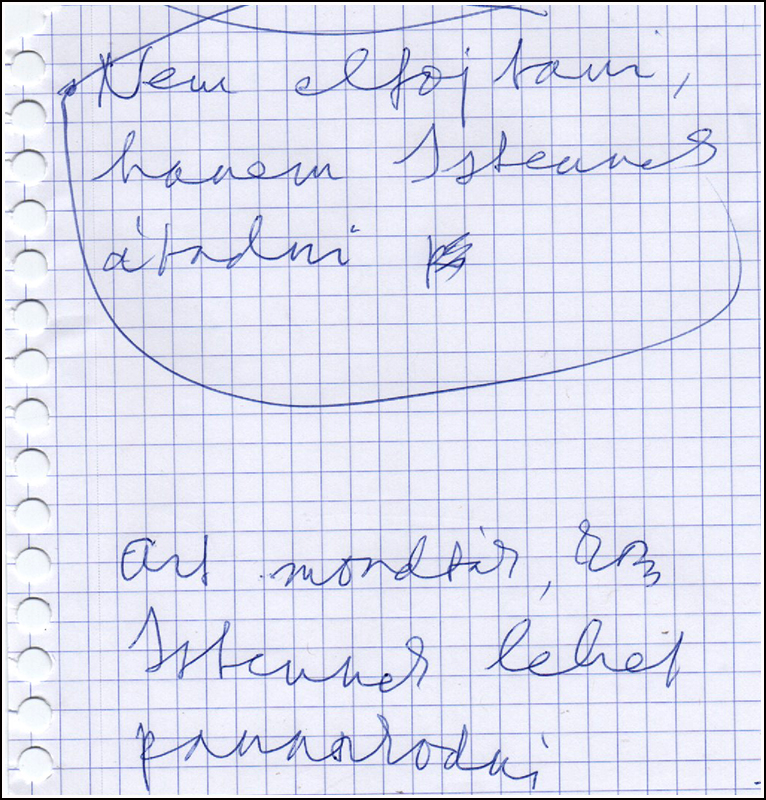 Nem elfojtani,
hanem Istennek
átadni
Azt mondták, hogy
Istennek lehet
panaszkodni